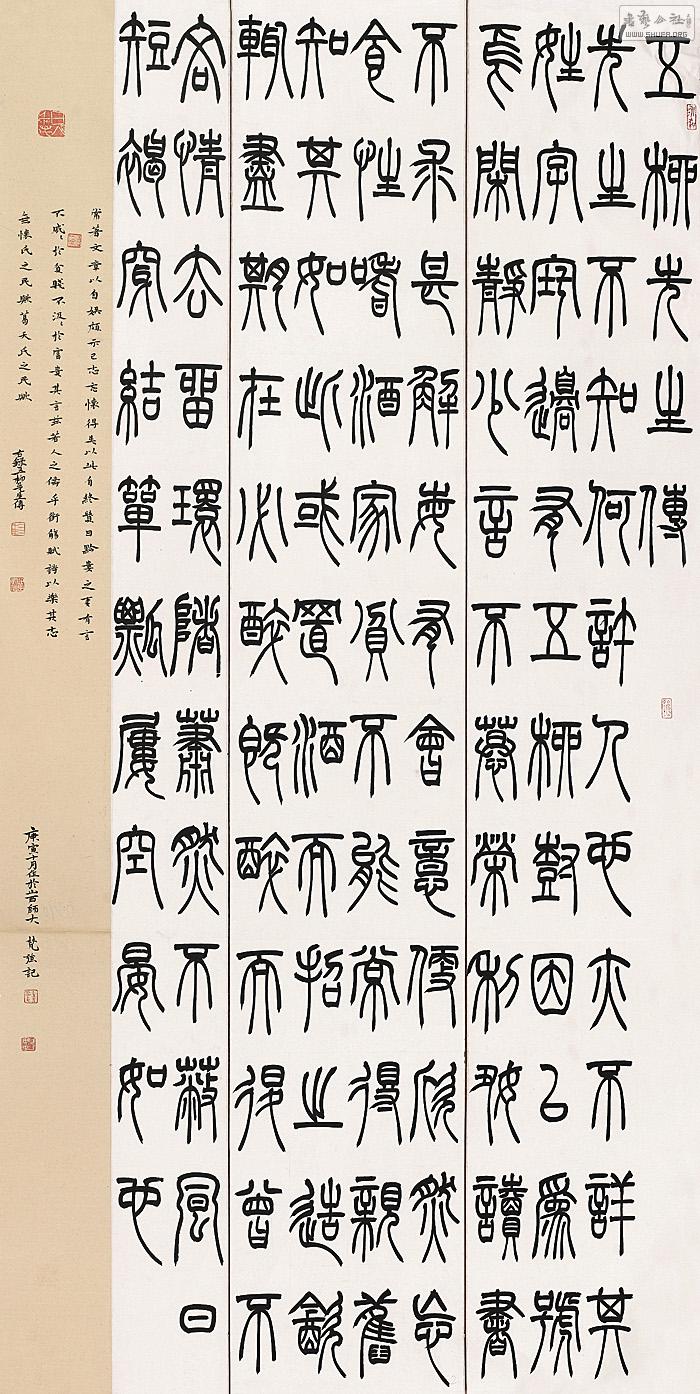 五柳先生傳
先生不知何許人也亦不詳其
姓字宅邊有五柳樹因以為號
焉閑靜少言不慕榮利好讀書
不求甚解每有會意便欣然忘
食性嗜酒家貧不能常得親舊
知其如此或置酒而招之造飲
輒盡期在必醉既醉而退曾不
吝情去留環堵蕭然不蔽風日
短褐穿結簞瓢屢空晏如也
常著文章以自娛頗示己志忘懷得失以此自終贊曰黔婁之妻有言
不戚〻於貧賤不汲〻於富貴其言茲若人之儔乎銜觴賦詩以樂其志
無懷氏之民歟葛天氏之民歟
右錄五柳先生傳
庚寅十月作於山西師大 記
书艺公社
WWW.SHUFA.ORG